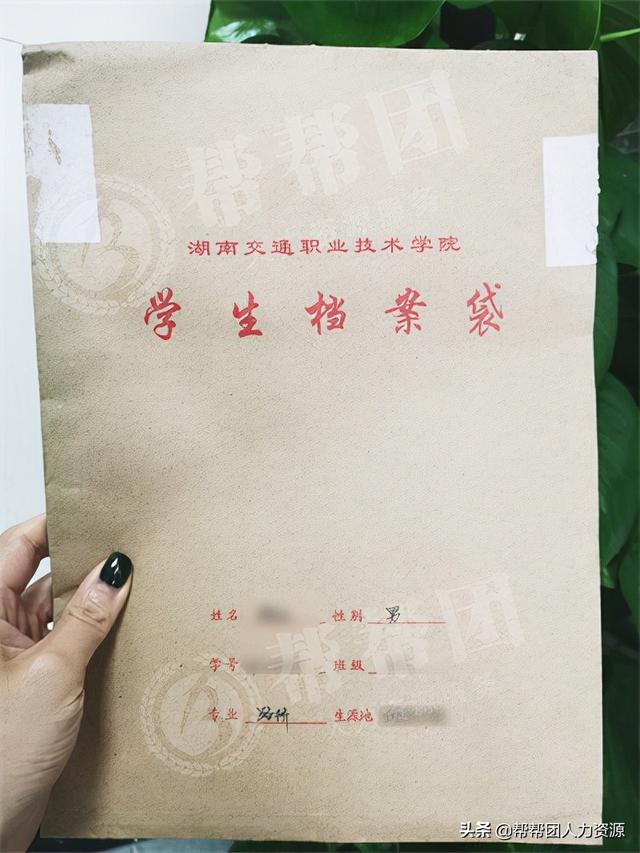 帮帮团
湖南交通职业技术学院
学生档案袋
姓名 性别 男
学号 班级
专业 路桥 生源地
帮帮团
头条 @帮帮团人力资源